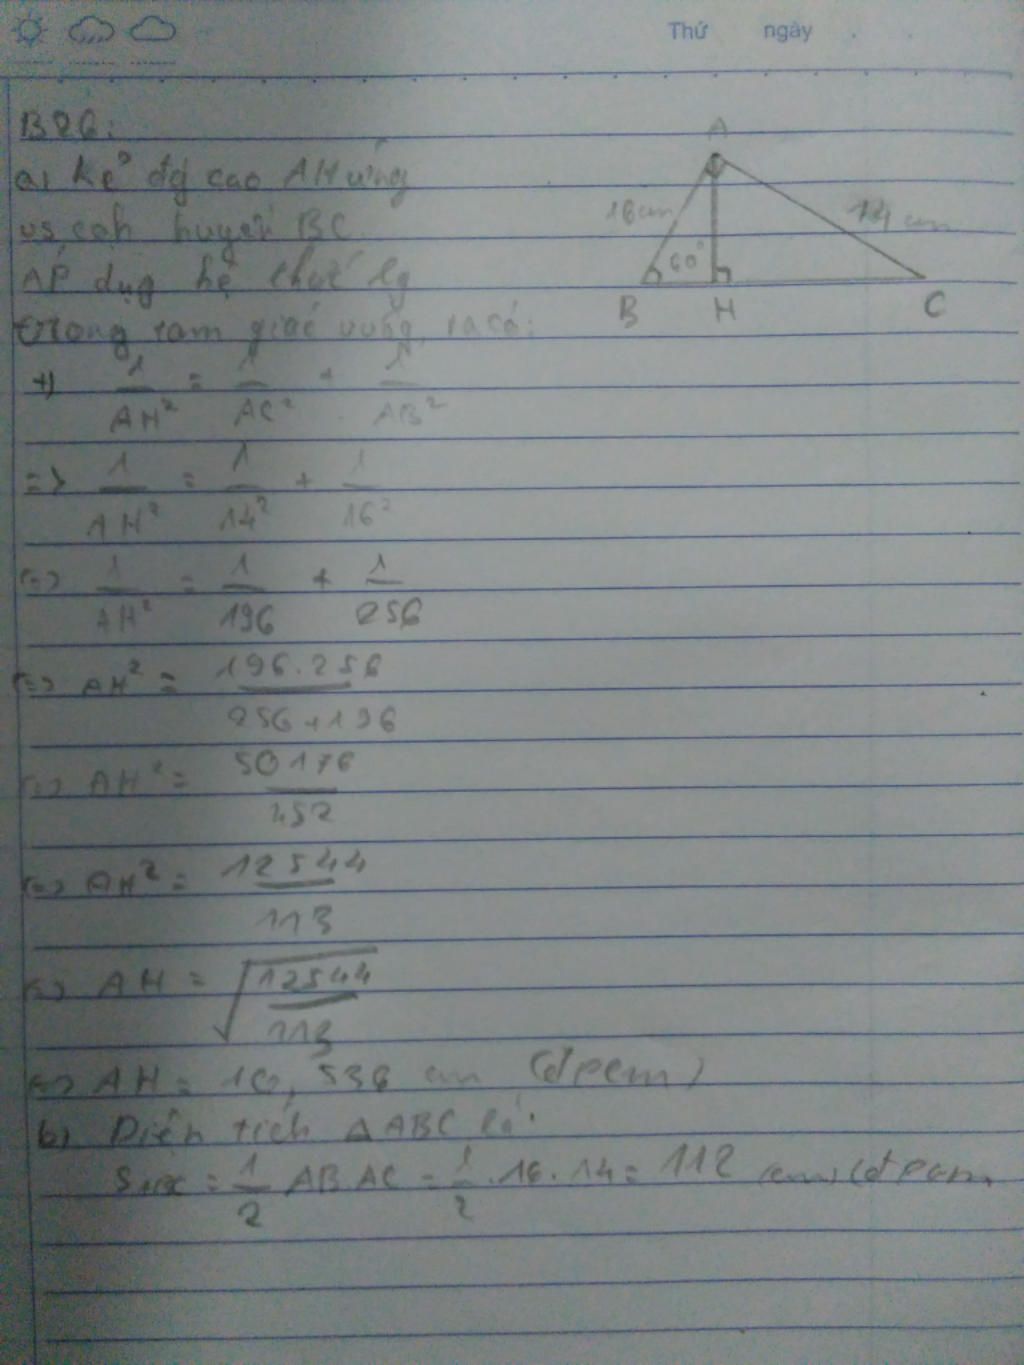 Thứ ngày
B26:
a, kẻ đg cao AH ứng
vs cạh huyền BC
ÁP dụg hệ thức lg
trong tam giác vuông, ta có:
+) 1/AH² = 1/AC² + 1/AB²
=> 1/AH² = 1/14² + 1/16²
(=) 1/AH² = 1/196 + 1/256
(=) AH² = 196.256/256+196
(=) AH² = 50176/452
(=) AH² = 12544/113
(=) AH = √12544/113
(=) AH = 10,536 cm (đpcm)
b) Diện tích ΔABC là:
SABC = 1/2 AB AC = 1/2 .16.14 = 112 (cm) (đpcm
A
16cm
14 cm
60°
B H C